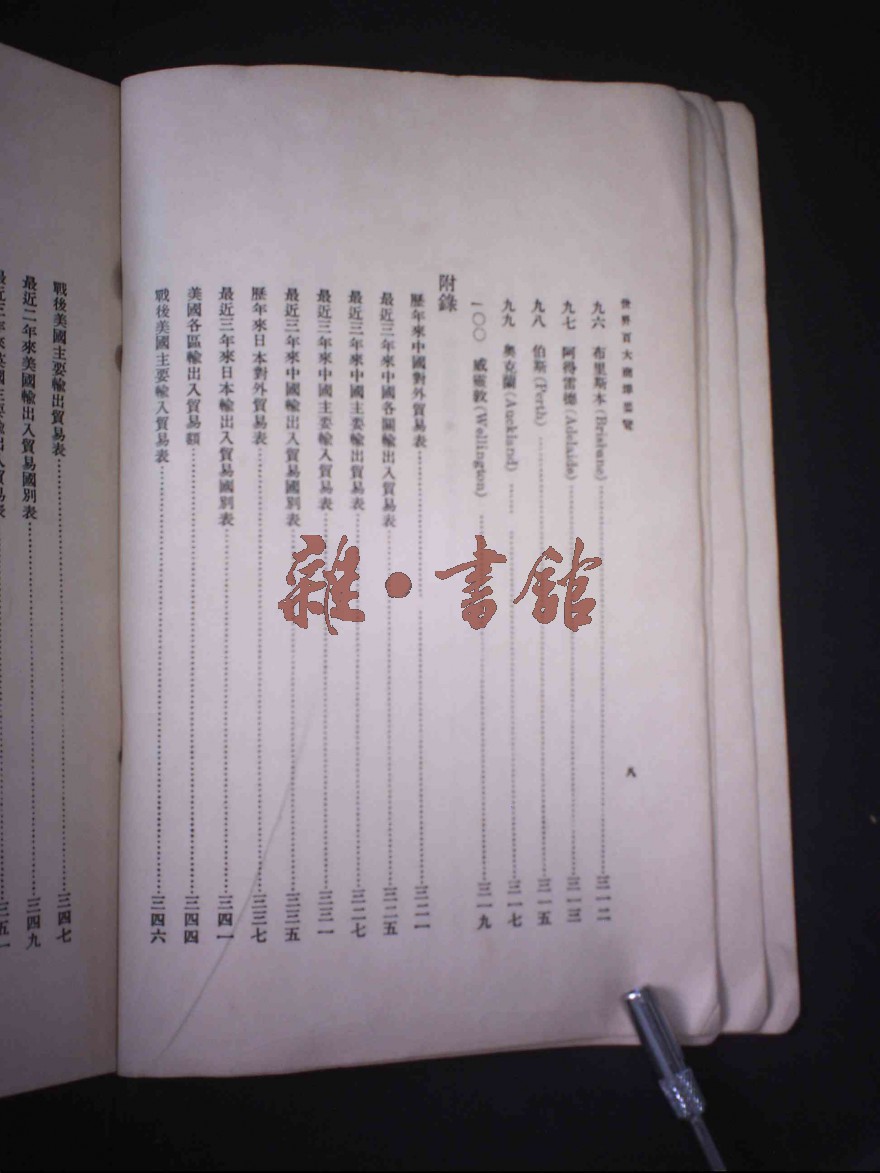 世界百大商埠要覽
八
九六 布里斯本(Brisbane)……三一二
九七 阿得雷德(Adelaide)……三一三
九八 伯斯(Perth)……三一五
九九 奧克蘭(Auckland)……三一七
一〇〇 威靈敦(Wellington)……三一九
附錄
歷年來中國對外貿易表……三二一
最近三年來中國各關輸出入貿易表……三二五
最近三年來中國主要輸出貿易表……三二七
最近三年來中國主要輸入貿易表……三三一
最近三年來中國輸出入貿易國別表……三三五
歷年來日本對外貿易表……三三七
最近三年來日本輸出入貿易國別表……三四一
美國各區輸出入貿易額……三四四
戰後美國主要輸入貿易表……三四六
戰後美國主要輸出貿易表……三四七
最近二年來美國輸出入貿易國別表……三四九
最近三年來英國主要輸出入貿易表……三五一
雜·書館